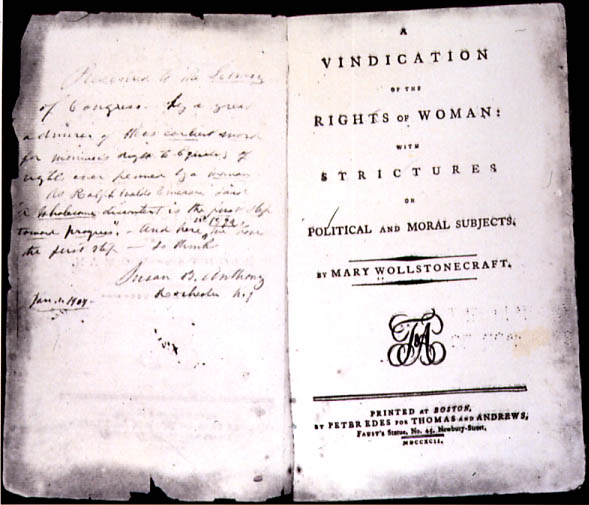 Presented to the Library
of Congress by a great
admirer of this earliest word
for woman's right to Equality of
rights ever penned by a woman
As Ralph Waldo Emerson said
"A wholesome discontent is the first step
toward progress". And here in 1792 we have
the first step — so think
Susan B. Anthony
Rochester N.Y
Jan. 1. 1904.
A
VINDICATION
OF THE
RIGHTS OF WOMAN:
WITH
STRICTURES
ON
POLITICAL AND MORAL SUBJECTS.
BY MARY WOLLSTONECRAFT.
T&A
PRINTED AT BOSTON,
BY PETER EDES FOR THOMAS AND ANDREWS,
FAUST'S Statue, No. 45, Newbury-Street,
MDCCXCII.